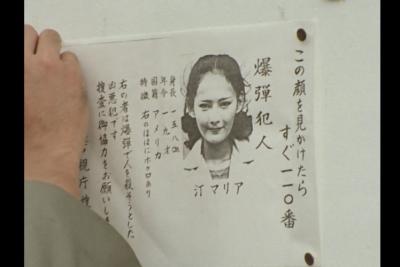 この顔を見かけたら
すぐ一一〇番
爆弾犯人
汀マリア
身長 一五八糎
年令 一九才
国籍 アメリカ
特徴 右のほほにホクロあり
右の者は爆弾で人を殺そうとした
凶悪犯です
捜査に御協力をお願いしま
視庁